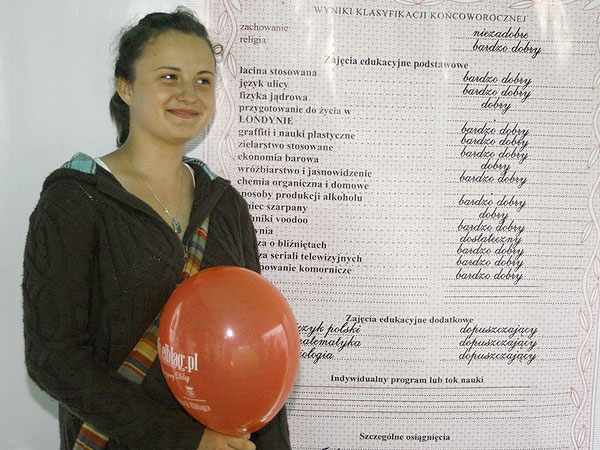 WYNIKI KLASYFIKACJI KOŃCOWOROCZNEJ
zachowanie niezadobre
religia bardzo dobry
Zajęcia edukacyjne podstawowe
łacina stosowana bardzo dobry
język ulicy bardzo dobry
fizyka jądrowa dobry
przygotowanie do życia w
LONDYNIE bardzo dobry
graffiti i nauki plastyczne bardzo dobry
zielarstwo stosowane bardzo dobry
ekonomia barowa dobry
wróżbiarstwo i jasnowidzenie bardzo dobry
chemia organiczna i domowe
sposoby produkcji alkoholu bardzo dobry
iec szarpany dobry
niki voodoo bardzo dobry
ynia dostateczny
za o bliźniętach bardzo dobry
za seriali telewizyjnych bardzo dobry
powanie komornicze bardzo dobry
Zajęcia edukacyjne dodatkowe
ęzyk polski dopuszczający
atematyka dopuszczający
ologia dopuszczający
Indywidualny program lub tok nauki
Szczególne osiągnięcia
elblag.pl